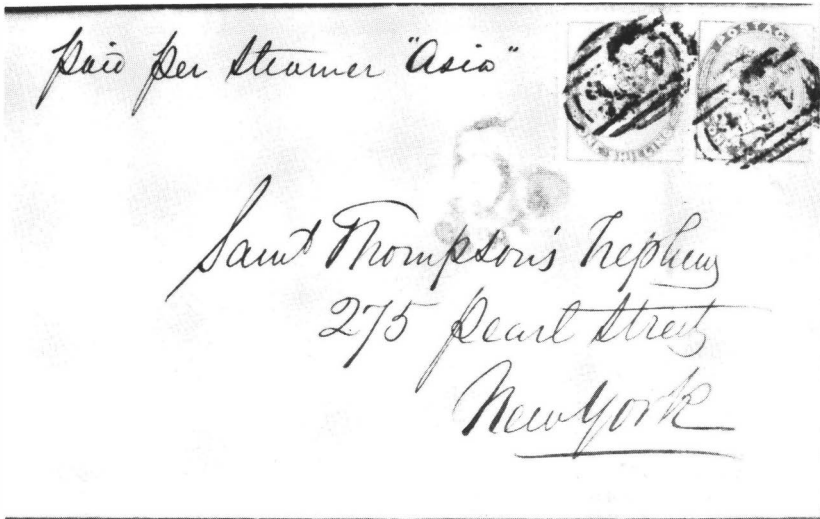 Paid per Steamer "Asia"
POSTAGE
Saml Thompson's Nephew
275 Pearl Street
New York